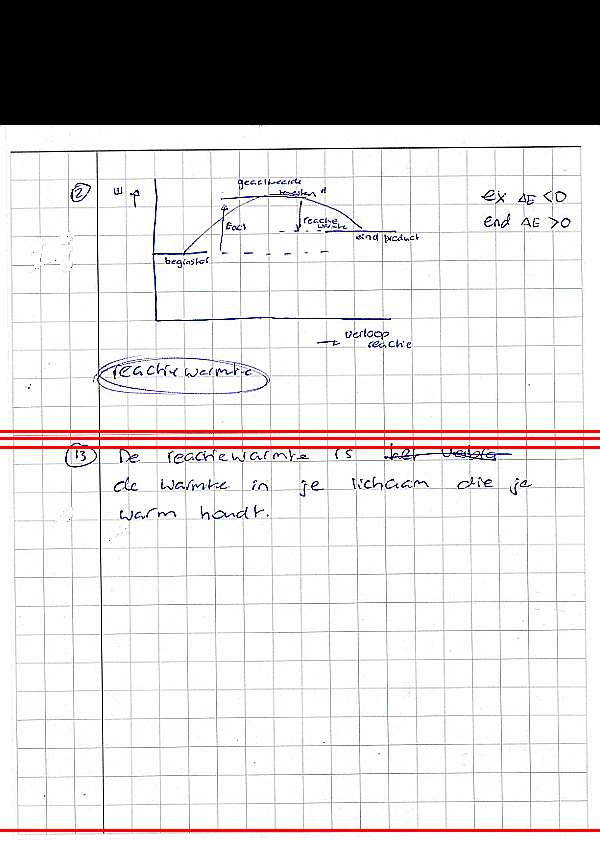 2
E
geactiveerde
toestand
ex ΔE <0
Eact
reactie
warmte
end ΔE >0
eind product
beginstof
verloop
reactie
reactiewarmte
13 De reactiewarmte is het
de warmte in je lichaam die je
warm houdt.